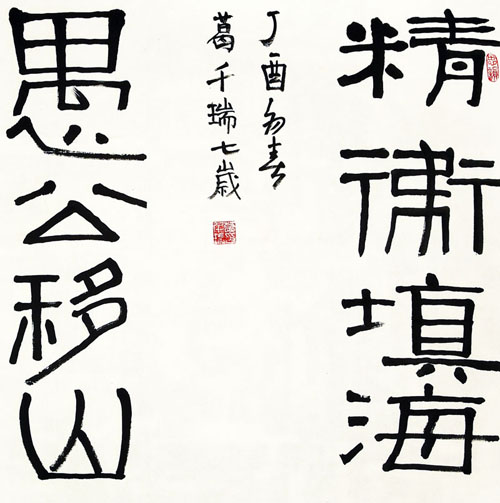 精衛填海
愚公移山
丁酉初春
葛千瑞七歲